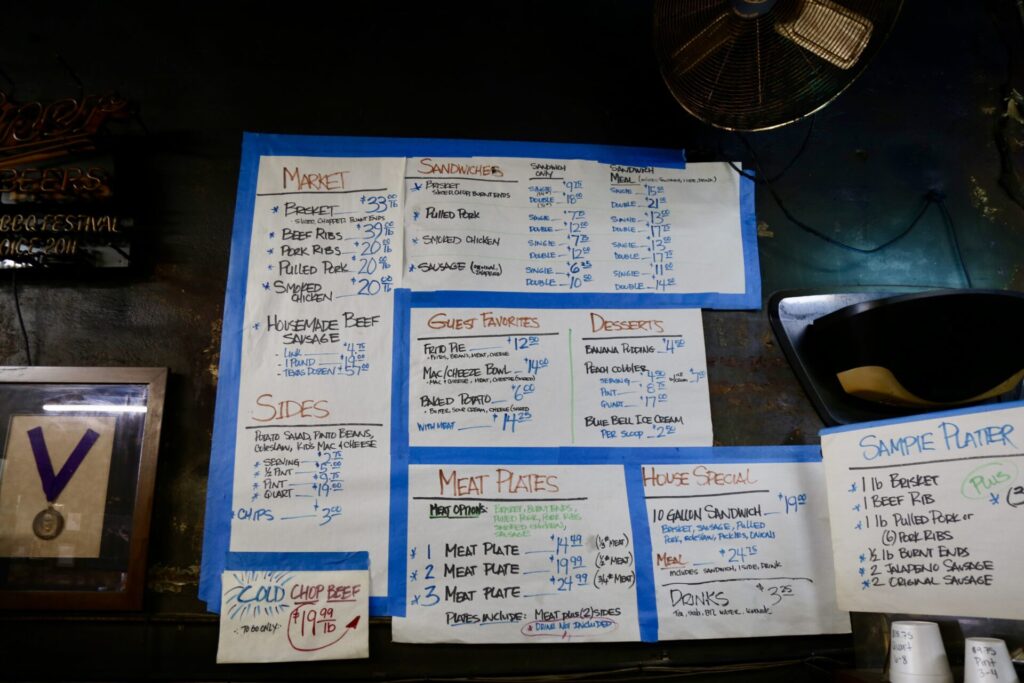 BEERS
BBQ FESTIVAL
SINCE 2011
MARKET
* BRISKET $33.00 lb
- SLICED, CHOPPED, BURNT ENDS
* BEEF RIBS $39.00 lb
* PORK RIBS $20.00 lb
* PULLED PORK $20.00 lb
* SMOKED CHICKEN $20.00 lb
* HOUSEMADE BEEF SAUSAGE
- LINK $4.75
- 1 POUND $19.00
- TEXAS DOZEN $57.00
SIDES
POTATO SALAD, PINTO BEANS,
COLESLAW, KID'S MAC & CHEESE
* SERVING $2.75
* ½ PINT $5.00
* PINT $9.75
* QUART $19.00
* CHIPS $3.00
COLD CHOP BEEF
- TO GO ONLY - $19.99 lb
SANDWICHES
SANDWICH ONLY
SANDWICH MEAL
* BRISKET SINGLE $9.75 SINGLE $15.50
SLICED, CHOP, BURNT ENDS DOUBLE $18.00 DOUBLE $21
* PULLED PORK SINGLE $7.75 SINGLE $13
DOUBLE $12.00 DOUBLE $17
* SMOKED CHICKEN SINGLE $7.75 SINGLE $13
DOUBLE $12.00 DOUBLE $17
* SAUSAGE SINGLE $6.25 SINGLE $11.00
DOUBLE $10.50 DOUBLE $14.50
GUEST FAVORITES
FRITO PIE $12.50
- FRITOS, BEANS, MEAT, CHEESE
MAC/CHEEZE BOWL $14.00
- MAC & CHEESE, MEAT, CHEESE
BAKED POTATO $6.00
- BUTTER, SOUR CREAM, CHEESE
WITH MEAT $14.25
DESSERTS
BANANA PUDDING $4.50
PEACH COBBLER
SERVING $4.50
PINT $8.75
QUART $17.00
BLUE BELL ICE CREAM
PER SCOOP $2.50
MEAT PLATES
MEAT OPTIONS: BRISKET, BURNT ENDS,
PULLED PORK, PORK RIBS
SMOKED CHICKEN,
SAUSAGE
* 1 MEAT PLATE $14.99 (⅓# MEAT)
* 2 MEAT PLATE $19.99 (½# MEAT)
* 3 MEAT PLATE $24.99 (¾# MEAT)
PLATES INCLUDE: MEAT PLUS (2) SIDES
* DRINK NOT INCLUDED
HOUSE SPECIAL
10 GALLON SANDWICH $19.00
BRISKET, SAUSAGE, PULLED
PORK, COLESLAW, PICKLES, ONIONS
MEAL $24.75
INCLUDES SANDWICH, 1 SIDE, DRINK
DRINKS $3.25
TEA, SODA, BTL WATER
SAMPLE PLATTER
* 1 lb BRISKET
* 1 BEEF RIB
* 1 lb PULLED PORK or
(6) PORK RIBS
* ½ lb BURNT ENDS
* 2 JALAPENO SAUSAGE
* 2 ORIGINAL SAUSAGE
PLUS
$18.75
Quart
6-8
$9.75
Pint
3-4